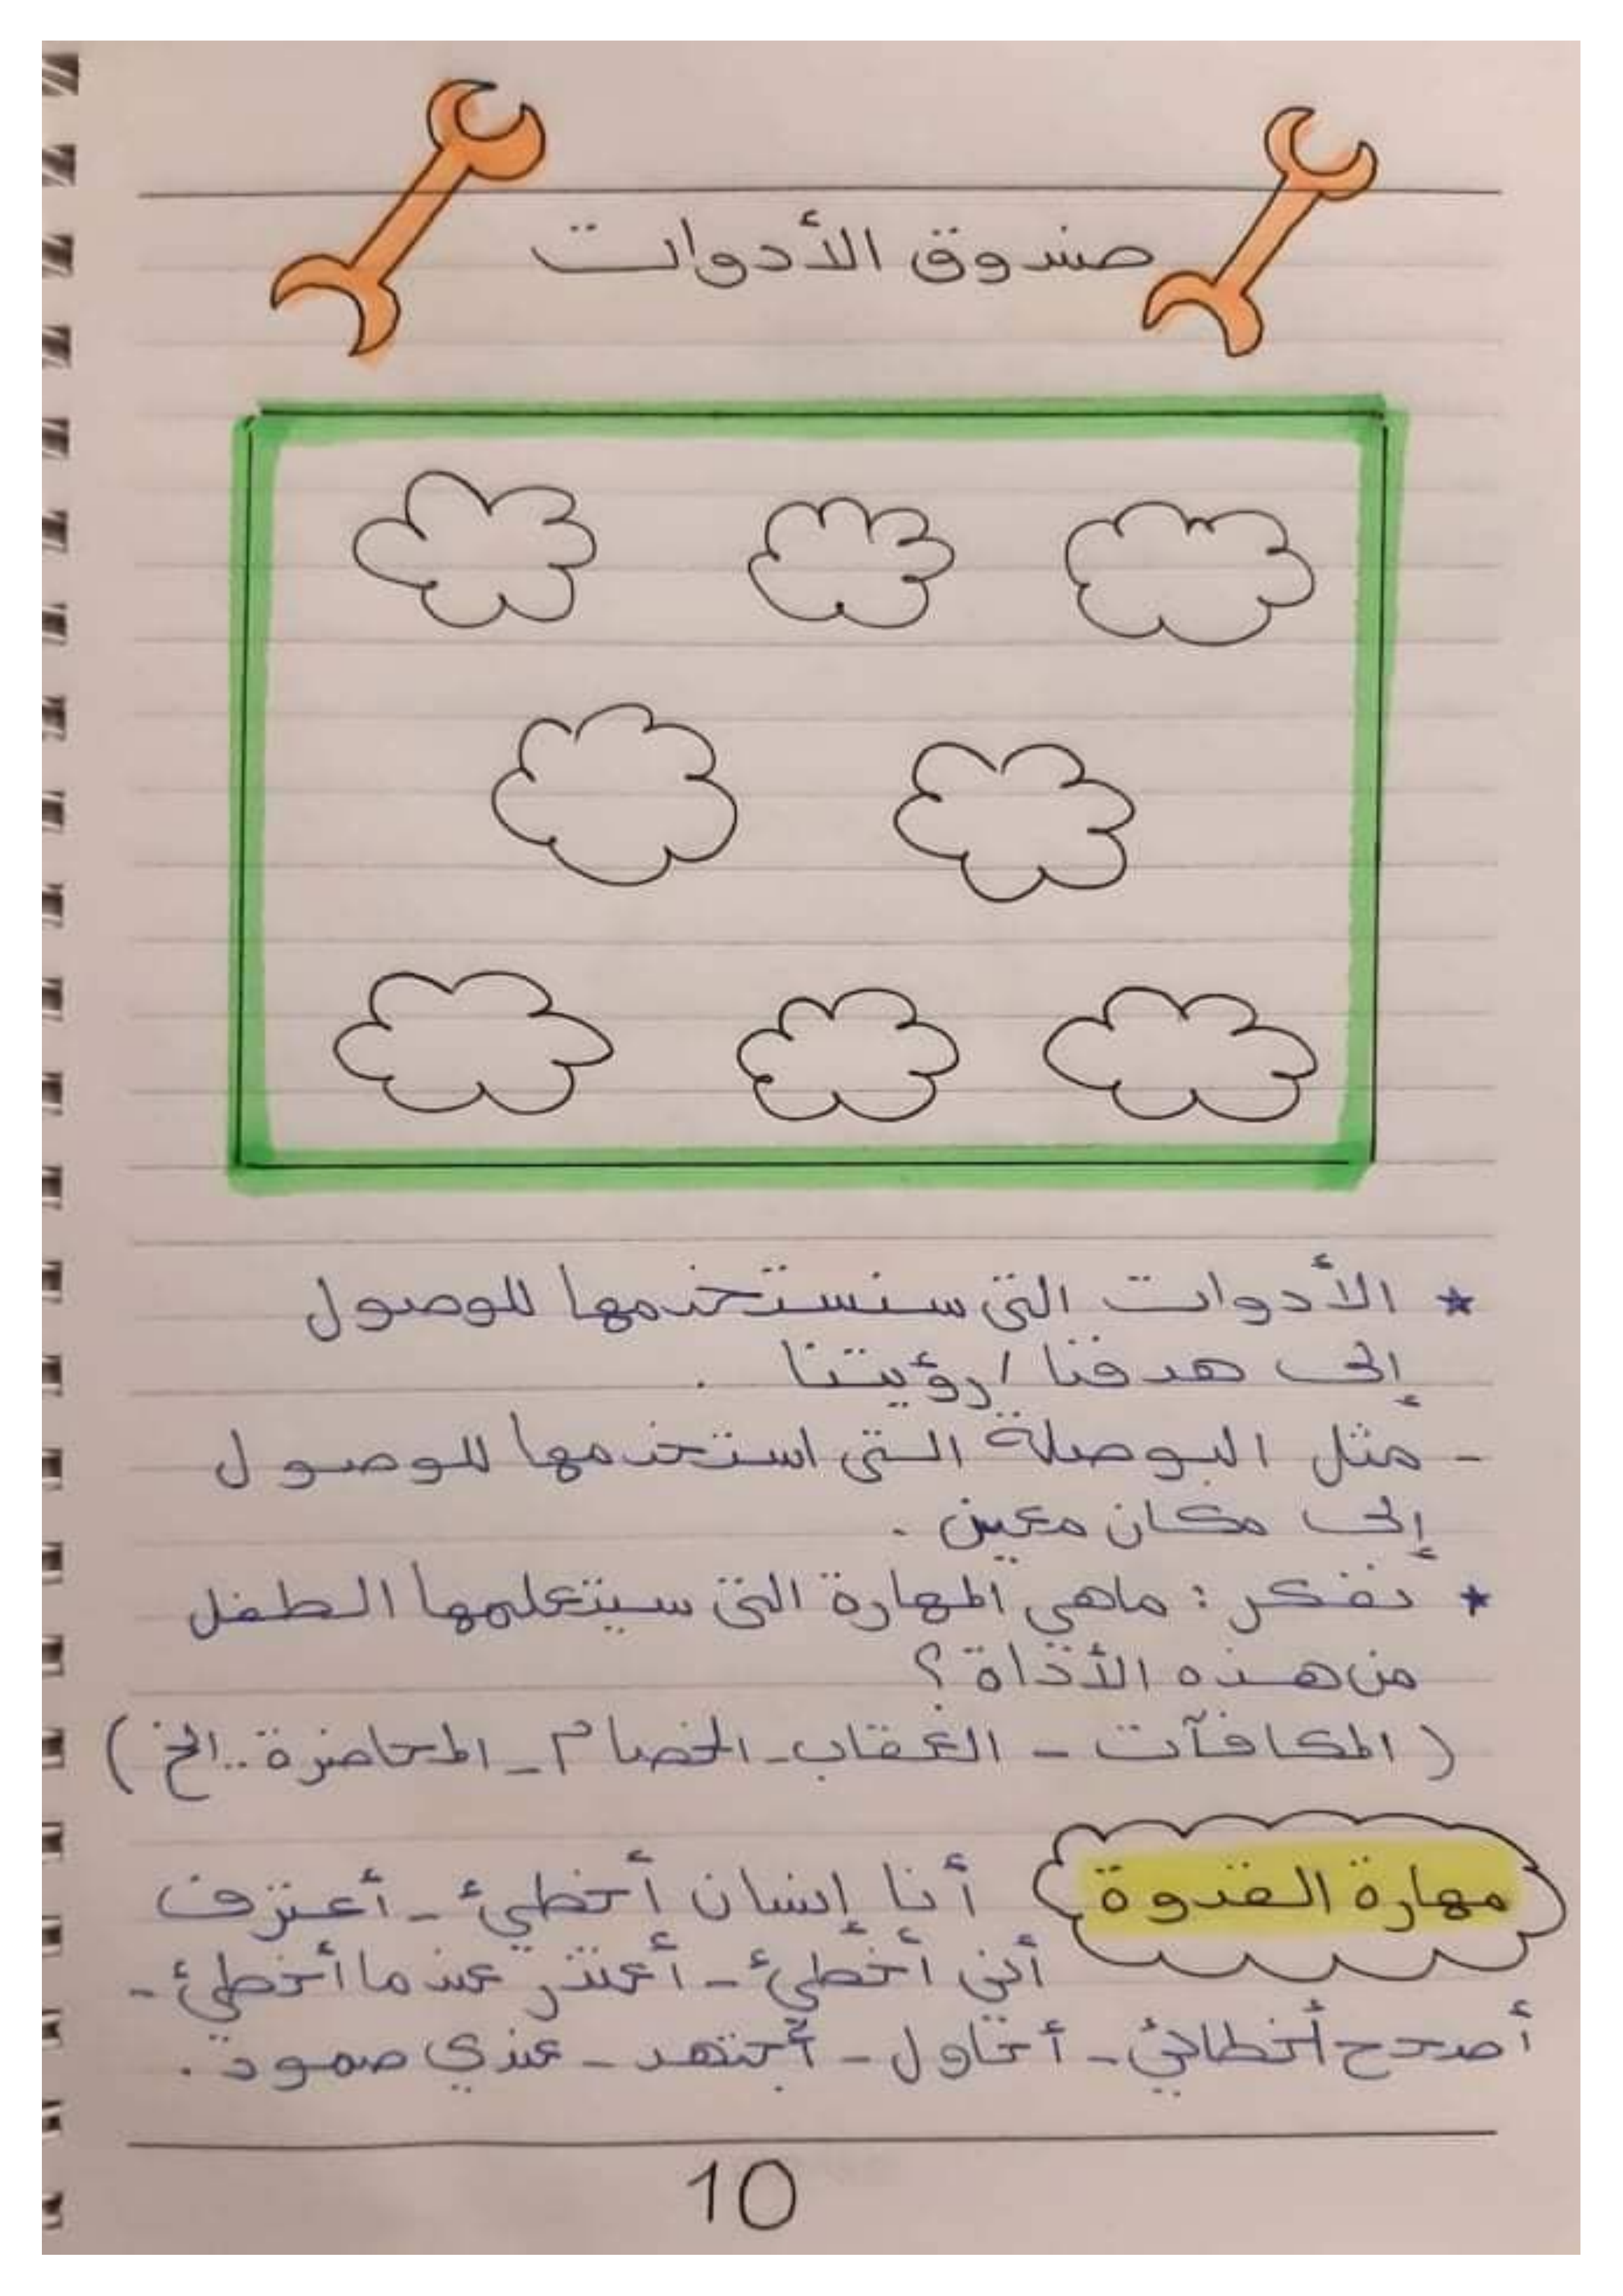 صندوق الأدوات
★ الأدوات التي سنستخدمها للوصول
إلى هدفنا / رؤيتنا .
- مثل البوصلة التي استخدمها للوصول
إلى مكان معين .
★ نفكر : ماهي المهارة التي سيتعلمها الطفل
من هذه الأداة ؟
( المكافآت - العقاب - الخصام - المحاضرة .. الخ )
مهارة القدوة
أنا إنسان أخطئ - أعترف
أني أخطئ - أعتذر عندما أخطئ -
أصحح أخطائي - أحاول - أجتهد - عندي صمود .
10